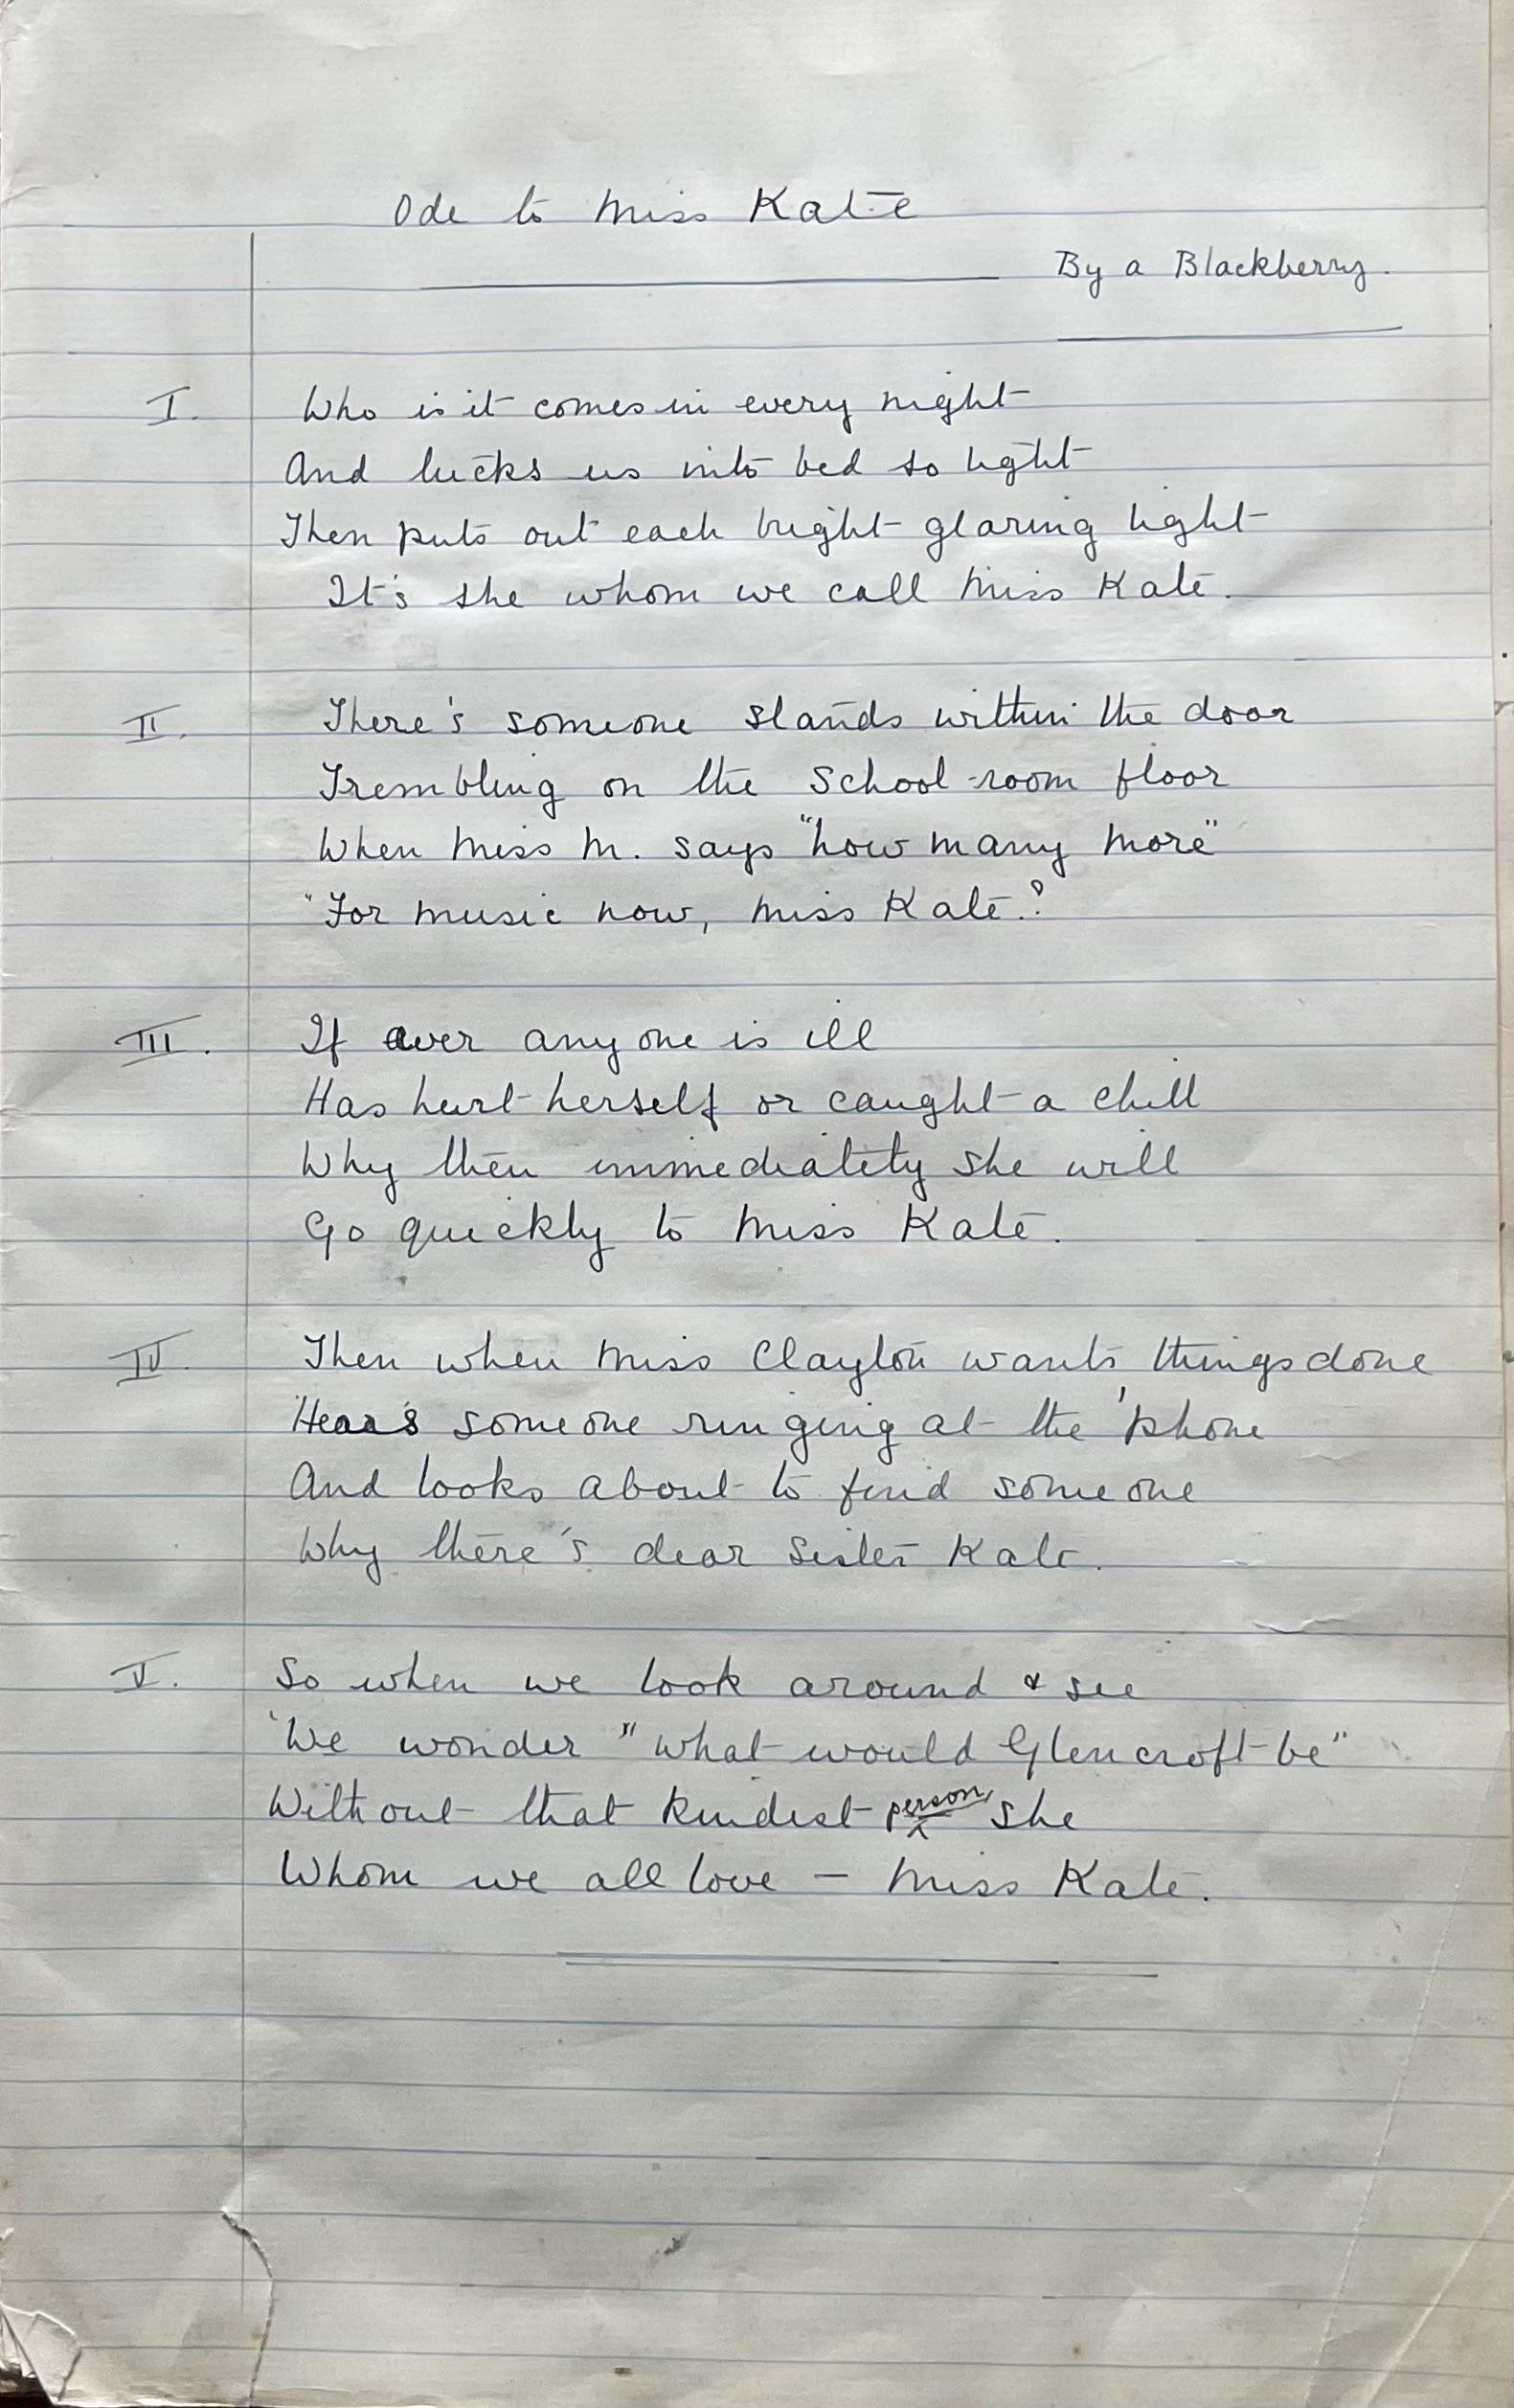 Ode to Miss Kate
By a Blackberry.
I. Who is it comes in every night
And tucks us into bed so tight
Then puts out each bright glaring light
It's she whom we call Miss Kate.
II. There's someone stands within the door
Trembling on the School-room floor
When Miss M. says "how many more"
"For music now, Miss Kate?
III. If ever anyone is ill
Has hurt herself or caught a chill
Why then immediately she will
Go quickly to Miss Kate.
IV. Then when Miss Clayton wants things done
Hears someone ringing at the 'phone
And looks about to find someone
Why there's dear Sister Kate.
V. So when we look around & see
We wonder "what would Glencroft be"
Without that kindest person, she
Whom we all love — Miss Kate.